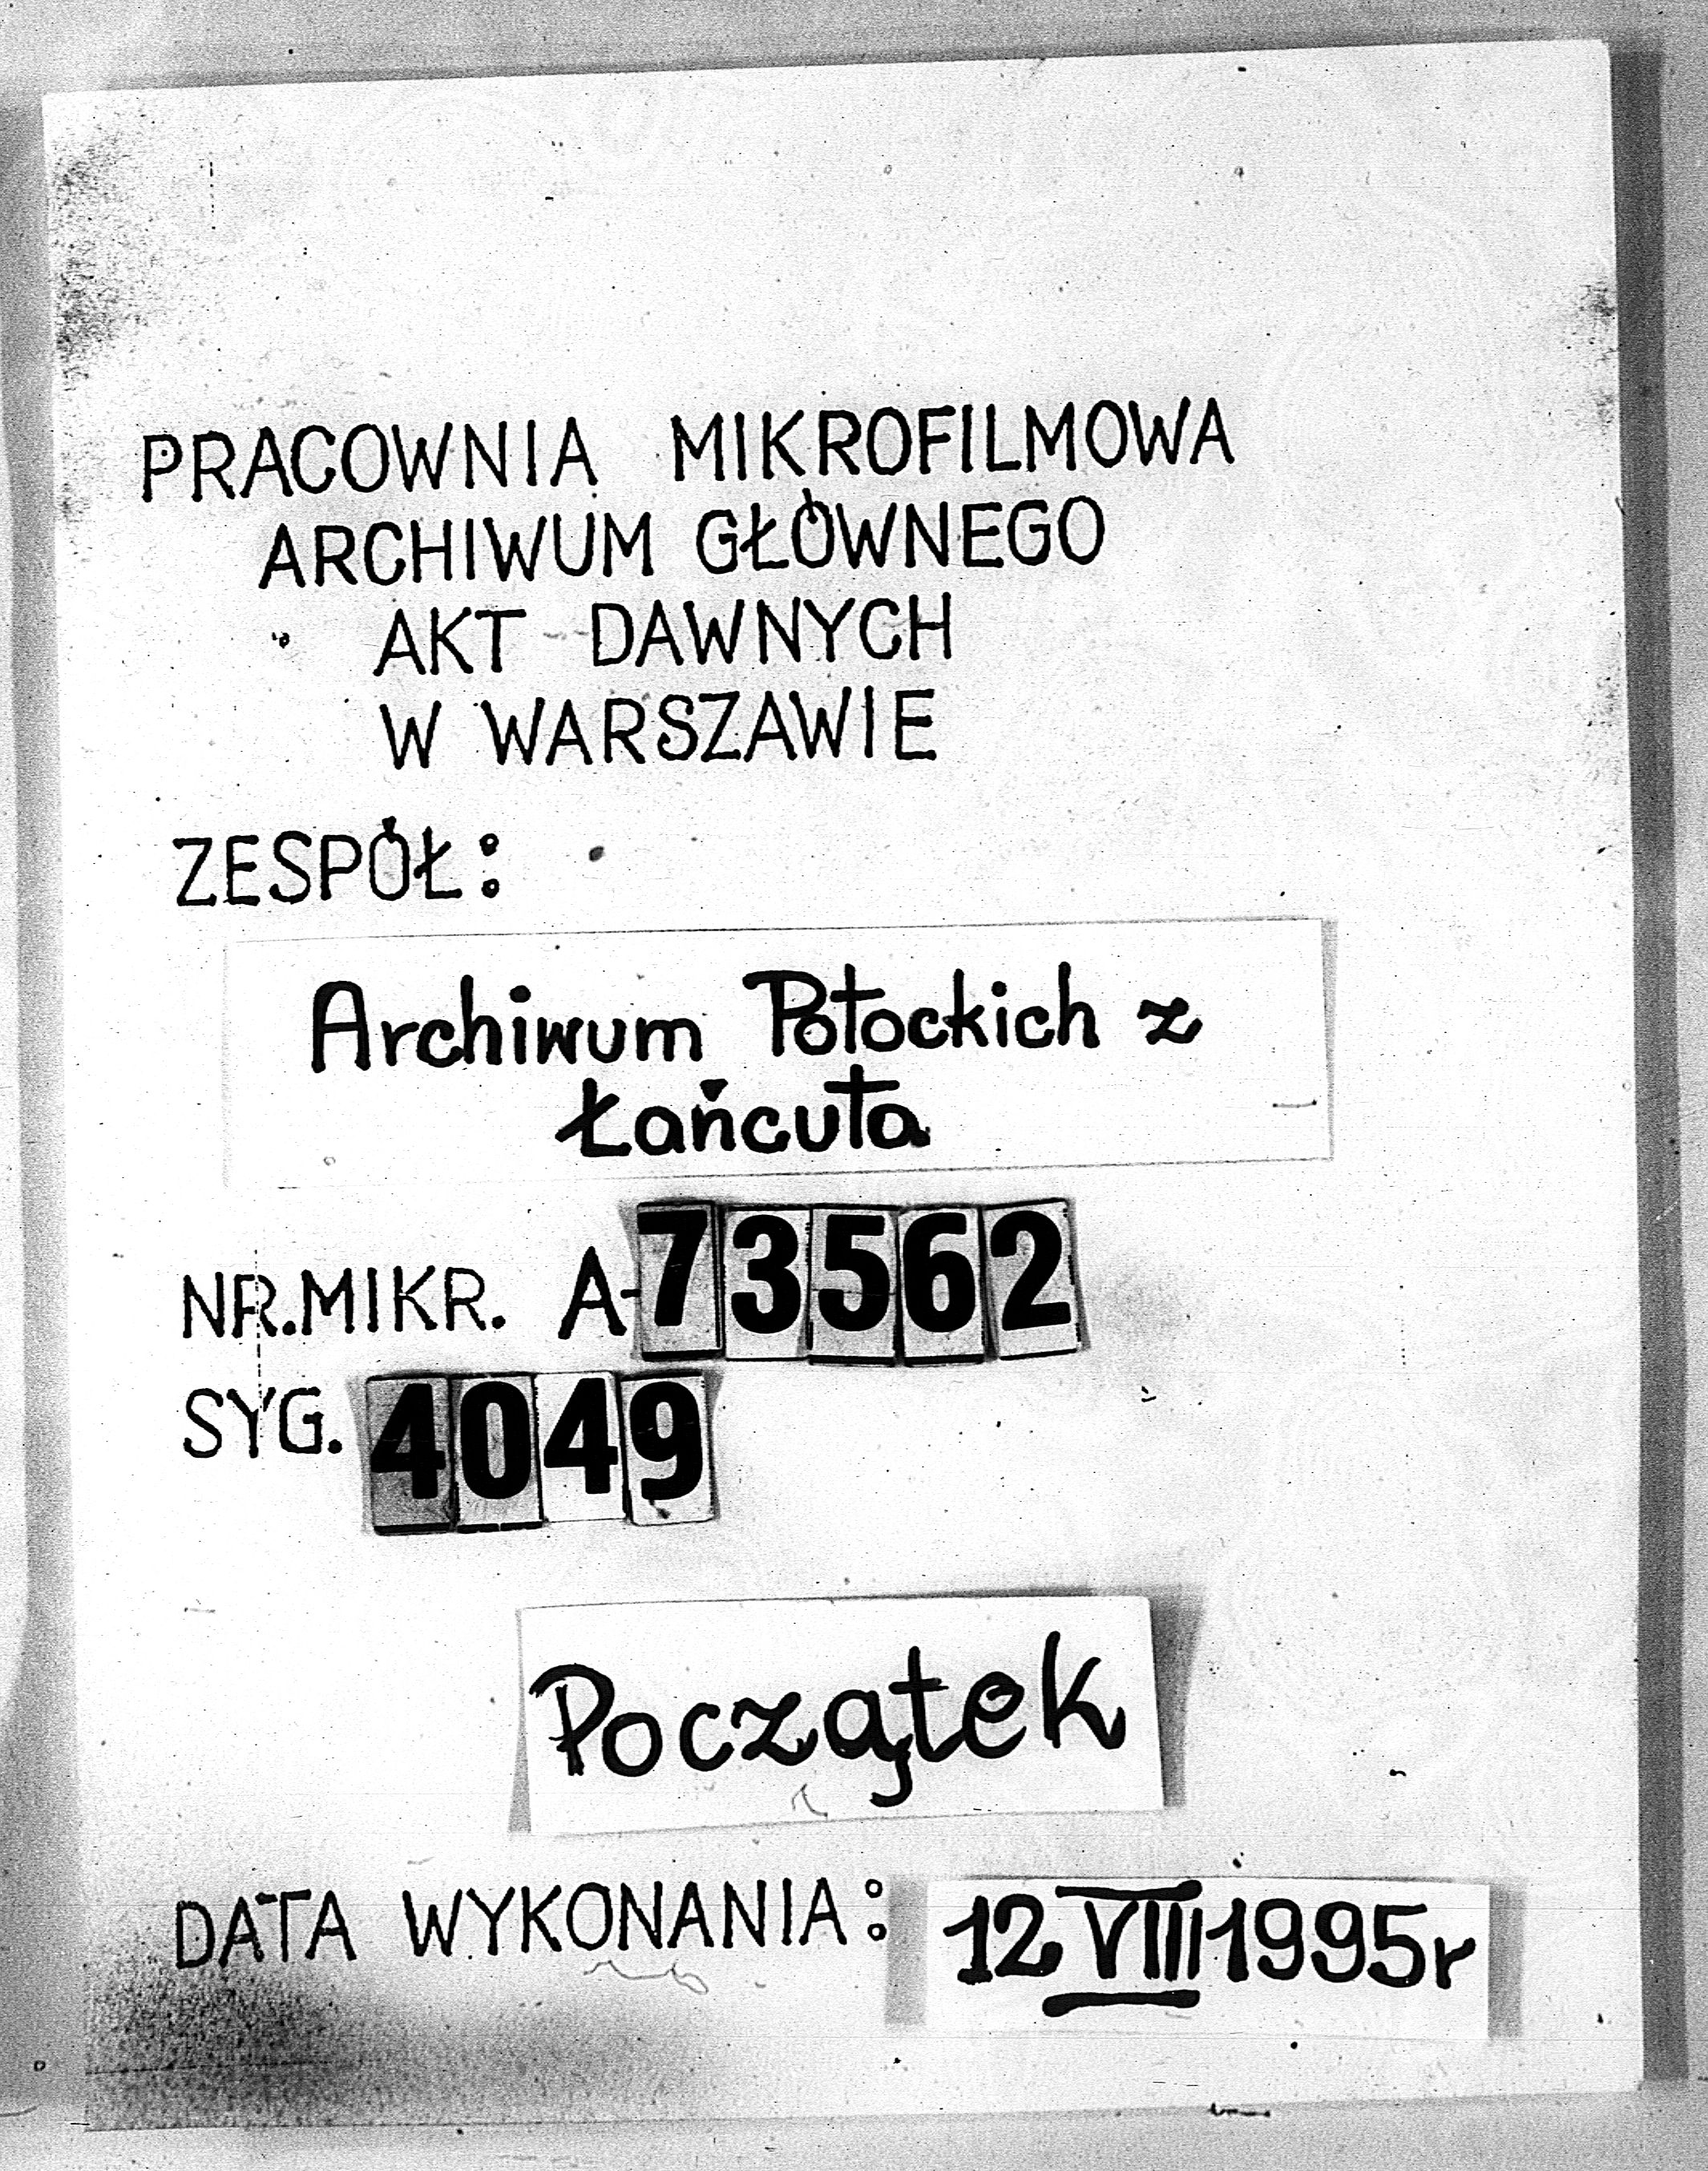 PRACOWNIA MIKROFILMOWA
ARCHIWUM GŁÓWNEGO
AKT DAWNYCH
W WARSZAWIE
ZESPÓŁ:
Archiwum Potockich z
Łańcuta
NR.MIKR. A-73562
SYG. 4049
Początek
DATA WYKONANIA: 12 VIII 1995r